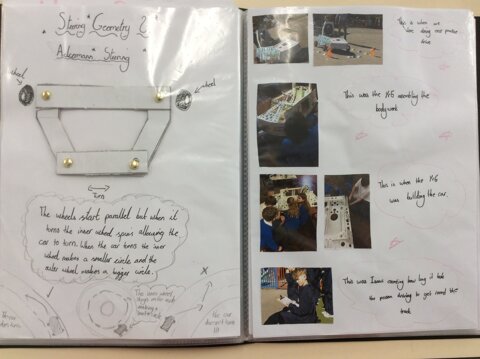 Steering Geometry &
Ackermann Steering
wheel
wheel
Turn
The wheels start parallel but when it
turns the inner wheel spins allowing the
car to turn. When the car turns the inner
wheel makes a smaller circle and the
outer wheel makes a bigger circle.
The inner wheel
the car
doesn't turn
This is when we
were doing our practice
drive
This was the Yr6 assembling the
bodywork
This is when the Yr6
was building the car.
This was Isaac counting how long it took
the person driving to get round the
track